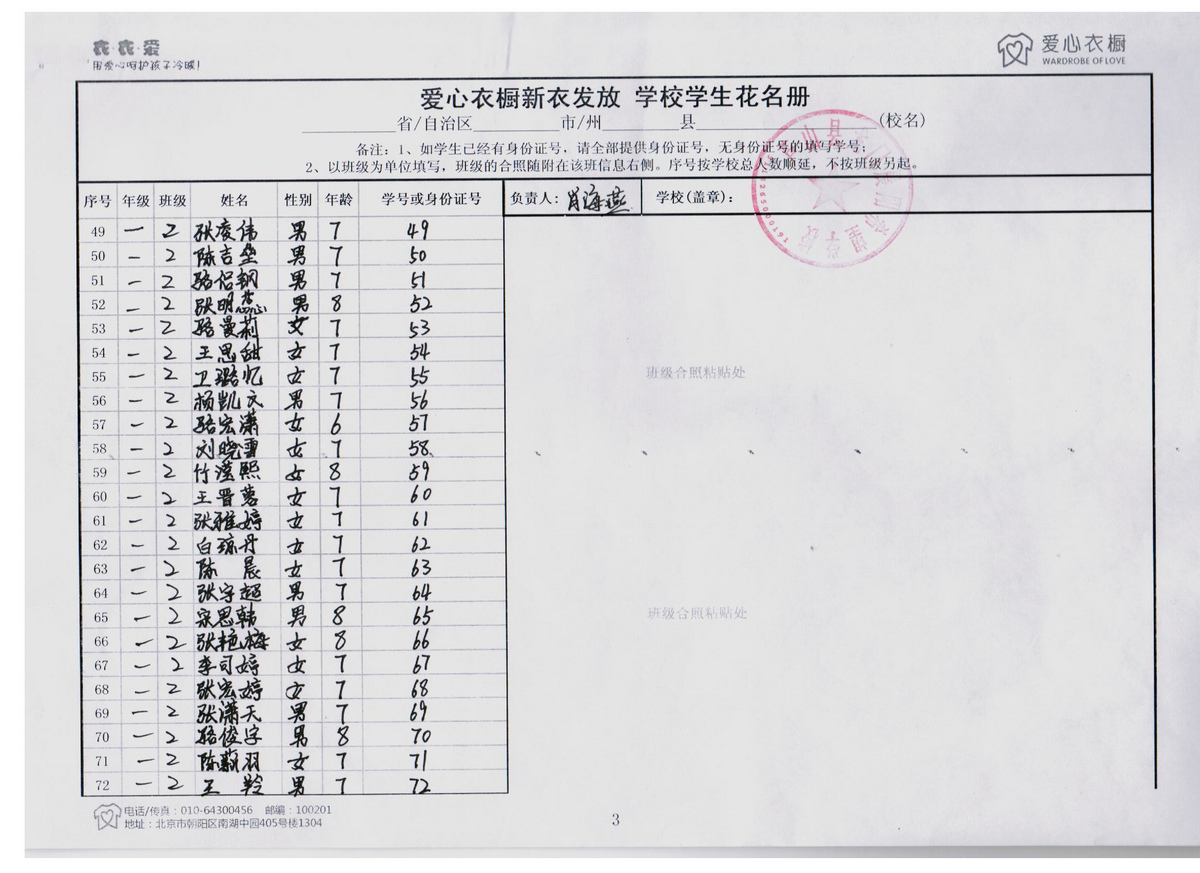 衣·衣·爱
用爱心呵护孩子冷暖!
爱心衣橱
WARDROBE OF LOVE
爱心衣橱新衣发放 学校学生花名册
省/自治区 市/州 县 (校名)
备注:1、如学生已经有身份证号,请全部提供身份证号,无身份证号的填写学号;
2、以班级为单位填写,班级的合照随附在该班信息右侧。序号按学校总人数顺延,不按班级另起。
序号 年级 班级 姓名 性别 年龄 学号或身份证号 负责人: 肖海燕 学校(盖章):
49 一 2 张凌伟 男 7 49
50 一 2 陈吉垒 男 7 50
51 一 2 骆侣钢 男 7 51
52 一 2 张明蕊 男 8 52
53 一 2 骆曼莉 女 7 53
54 一 2 王思甜 女 7 54
55 一 2 卫璐忆 女 7 55
56 一 2 杨凯文 男 7 56
57 一 2 骆宏潇 女 6 57
58 一 2 刘晓雪 女 7 58
59 一 2 竹滢熙 女 8 59
60 一 2 王晋 女 7 60
61 一 2 张雅婷 女 7 61
62 一 2 白琼丹 女 7 62
63 一 2 陈晨 女 7 63
64 一 2 张宇超 男 7 64
65 一 2 宋思韩 男 8 65
66 一 2 张艳梅 女 8 66
67 一 2 李司婷 女 7 67
68 一 2 张宏婷 女 7 68
69 一 2 张潇天 男 7 69
70 一 2 骆俊宇 男 8 70
71 一 2 陈羽 女 7 71
72 一 2 王羚 男 7 72
班级合照粘贴处
班级合照粘贴处
电话/传真:010-64300456 邮编:100201
地址:北京市朝阳区南湖中园405号楼1304
3